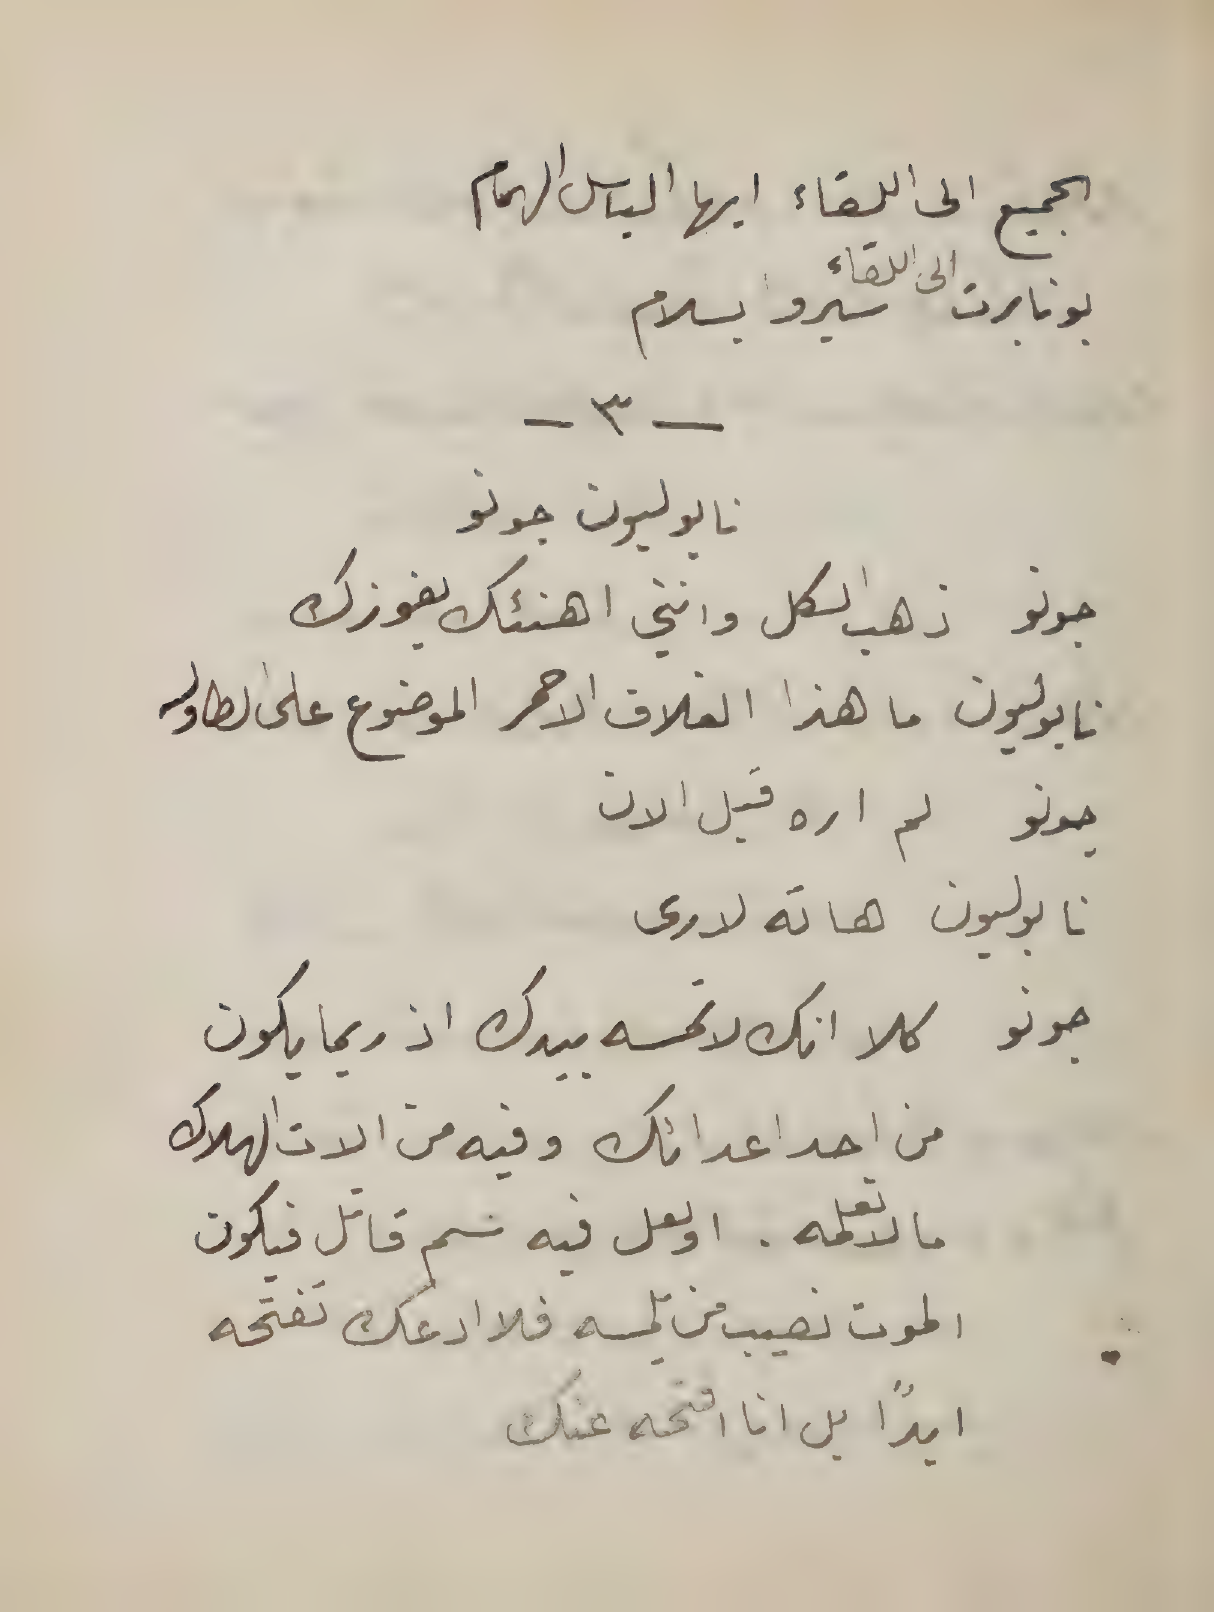 الجميع الى اللقاء ايها الباسل الهمام
بونابرت الى اللقاء سيروا بسلام
— ٣ —
نابوليون جونو
جونو ذهب الكل وانني اهنئك بفوزك
نابوليون ما هذا الغلاف الاحمر الموضوع على الطاوله
جونو لم اره قبل الان
نابوليون هاته لارى
جونو كلا انك لا تمسه بيدك اذ ربما يكون
من احد اعدائك وفيه من الات الهلاك
ما لا تعلمه . او لعل فيه سم قاتل فيكون
الموت نصيب من يلمسه فلا ادعك تفتحه
ابدًا بل انا افتحه عنك